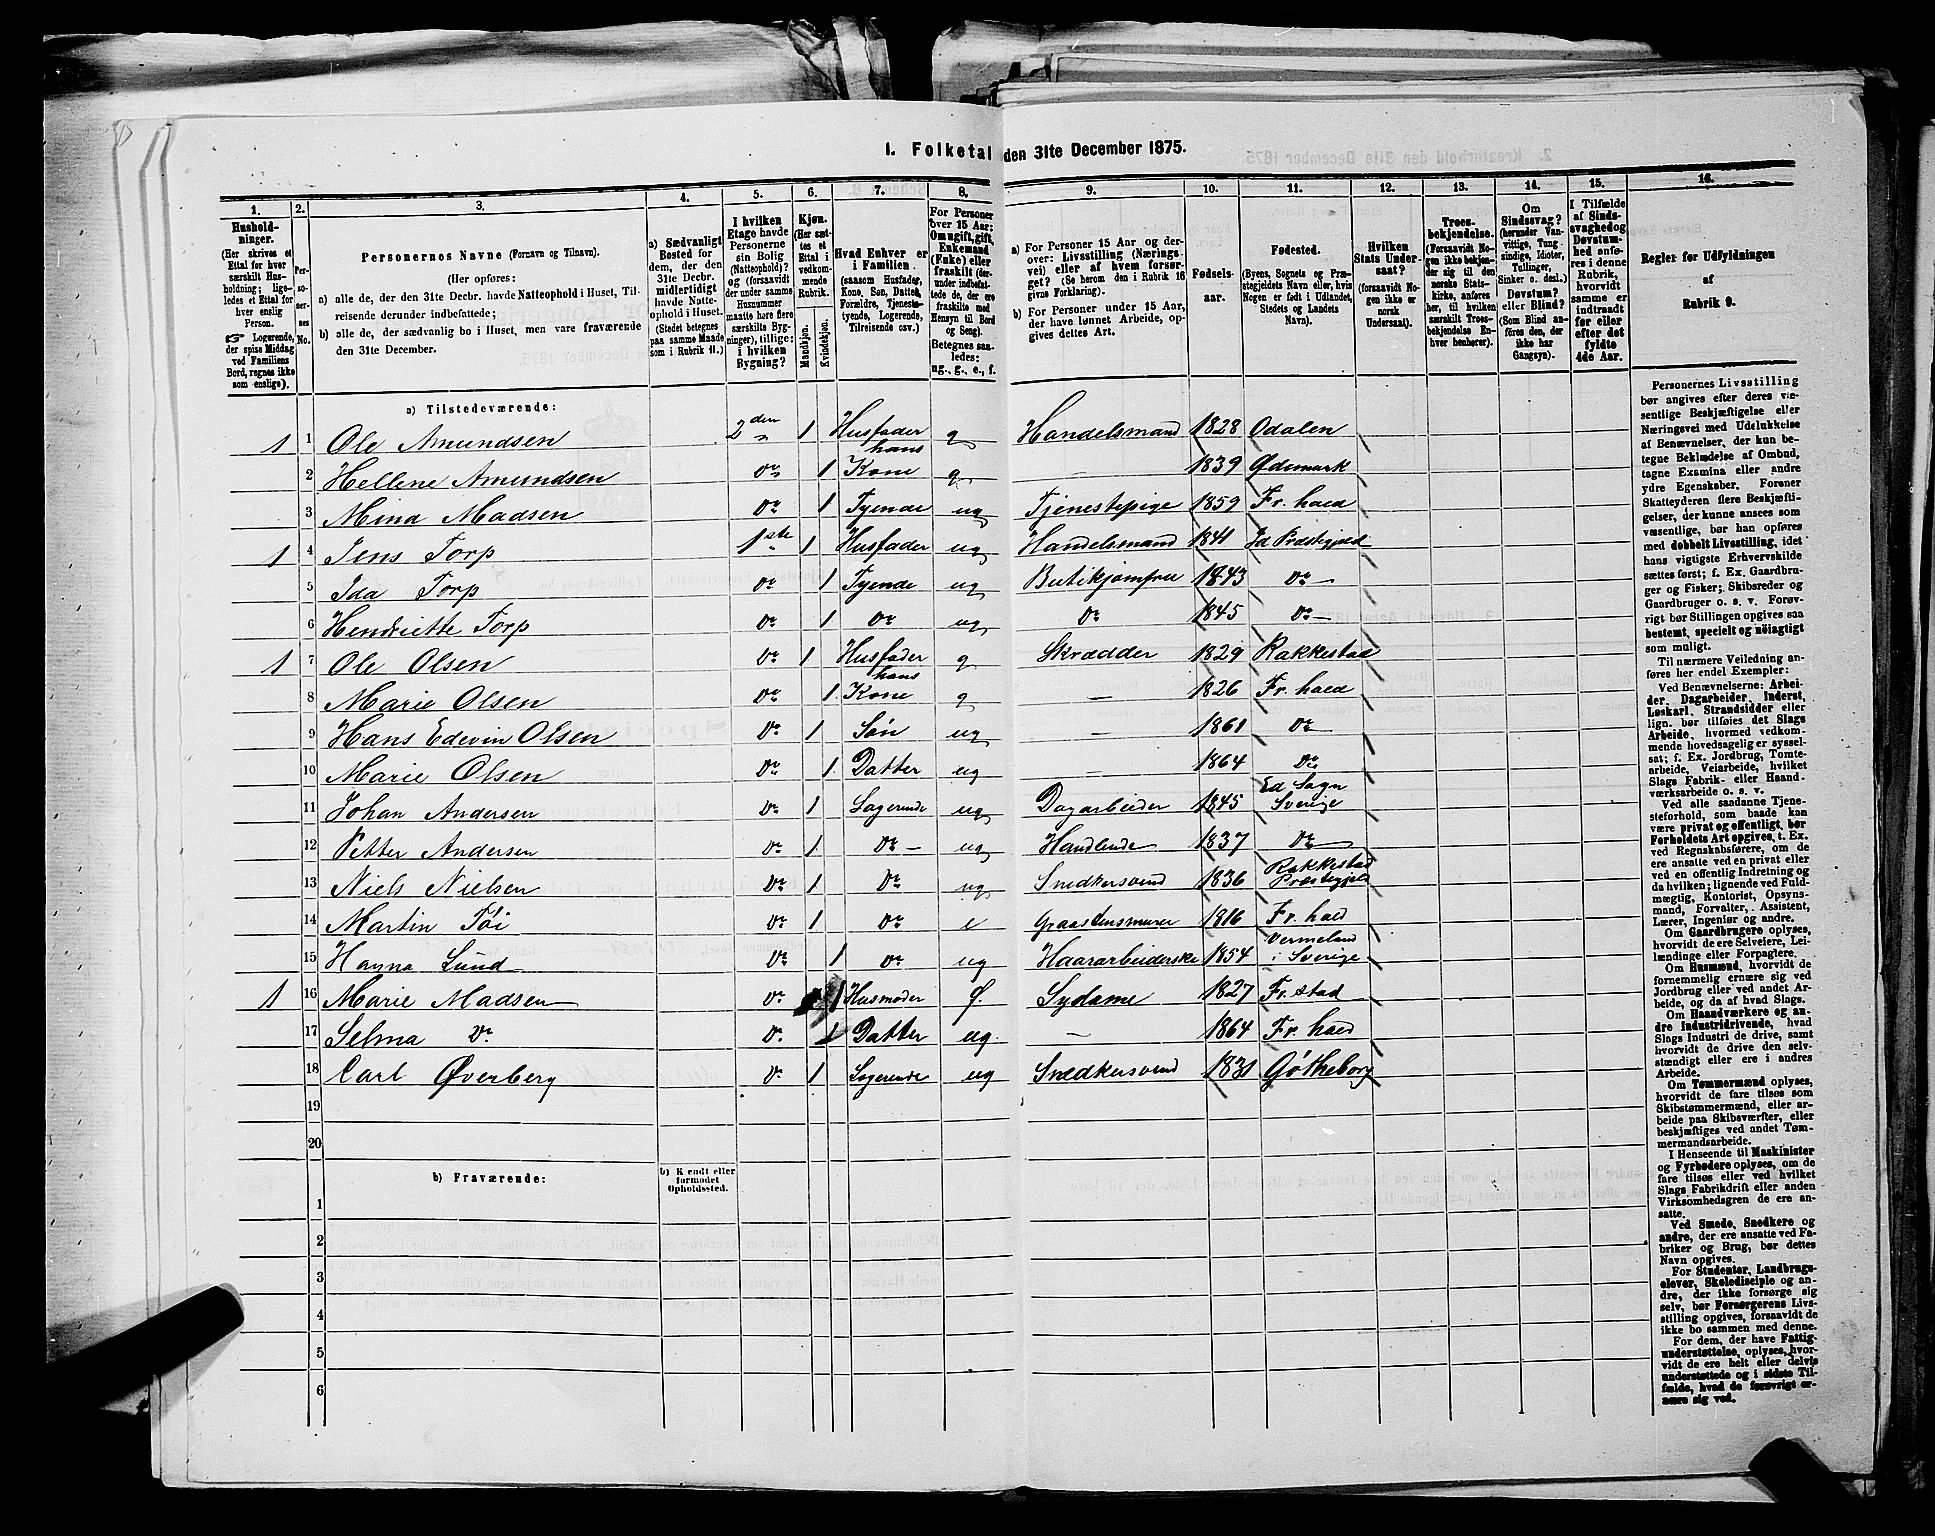 1. Folketal den 31te December 1875.
1. 2. 3. 4. 5. 6. 7. 8. 9. 10. 11. 12. 13. 14. 15. 16.
Hushold-
ninger.
(Her skrives et
Ettal for hver
særskilt Hus-
holdning; lige-
ledes et Ettal for
hver enslig
Person.
☞ Logerende,
der spise Middag
ved Familiens
Bord, regnes ikke
som enslige).
Per-
so-
ner-
nes
No.
Personernes Navne (Fornavn og Tilnavn).
(Her opføres:
a) alle de, der den 31te Decbr. havde Natteophold i Huset, Til-
reisende derunder indbefattede;
b) alle de, der sædvanlig bo i Huset, men vare fraværende
den 31te December.
a) Sædvanligt
Bosted for
dem, der den
31te Decbr.
midlertidigt
havde Natte-
ophold i Huset.
(Stedet betegnes
paa samme Maade
som i Rubrik 11.)
I hvilken
Etage havde
Personerne
sin Bolig
(Natteophold)?
(og forsaavidt
der under samme
Husnummer
maatte høre flere
særskilte Byg-
ninger), tillige:
i hvilken
Bygning?
Kjøn.
(Her sæt-
tes et
Ettal i
vedkom-
mende
Rubrik.
Mandkjøn.
Kvindekjøn.
Hvad Enhver er
i Familien.
(saasom Husfader,
Kone, Søn, Datter,
Forældre, Tjeneste-
tyende, Logerende,
Tilreisende osv.)
For Personer
over 15 Aar:
Om ugift, gift,
Enkemand
(Enke) eller
fraskilt (der-
under indbefat-
tede de, der ere
fraskilte med
Hensyn til Bord
og Seng).
Betegnes saa-
ledes:
ug., g., e., f.
a) For Personer 15 Aar og der-
over: Livsstilling (Nærings-
vei) eller af hvem forsør-
get? (Se herom den i Rubrik 16
givne Forklaring).
b) For Personer under 15 Aar,
der have lønnet Arbeide, op-
gives dettes Art.
Fødsels-
aar.
Fødested.
(Byens, Sognets og Præ-
stegjeldets Navn eller, hvis
Nogen er født i Udlandet,
Stedets og Landets
Navn).
Hvilken
Stats Under-
saat?
(forsaavidt No-
gen ikke er
norsk
Undersaat).
Troes-
bekjendelse.
(Forsaavidt No-
gen ikke bekjen-
der sig til den
norske Stats-
kirke, anføres
her, til hvilken
særskilt Troes-
bekjendelse En-
hver henhører).
Om
Sindssvag?
(herunder Van-
vittige, Tung-
sindige, Idioter,
Tullinger,
Sinker o. desl.)
Døvstum?
eller Blind?
(Som Blind an-
føres den, der
ikke har
Gangsyn).
I Tilfælde
af Sinds-
svaghed og
Døvstum-
hed anfø-
res i denne
Rubrik,
hvorvidt
samme er
indtraadt
før eller
efter det
fyldte
4de Aar.
Regler for Udfyldningen
af
Rubrik 9.
a) Tilstedeværende:
1 1 Ole Amundsen 2den 1 Husfader g Handelsmand 1828 Odalen
2 Hellene Amundsen do 1 hans Kone g — 1839 Ødemark
3 Mina Madsen do 1 Tyende ug Tjenestepige 1859 Fr. hald
1 4 Jens Torp 1ste 1 Husfader ug Handelsmand 1841 Id Præstegjeld
5 Ida Torp do 1 Tyende ug Butikjomfru 1843 do
6 Henriette Torp do 1 do ug do 1845 do
1 7 Ole Olsen do 1 Husfader g Skrædder 1829 Rakkestad
8 Marie Olsen do 1 hans Kone g — 1826 Fr. hald
9 Hans Edevin Olsen do 1 Søn ug — 1861 do
10 Marie Olsen do 1 Datter ug — 1864 do
11 Johan Andersen do 1 Logerende ug Dagarbeider 1845 Ed Sogn Sverige
12 Petter Andersen do 1 do ug Handlende 1837 do
13 Niels Nielsen do 1 do ug Snedkersvend 1836 Rakkestad Præstegjeld
14 Martin Tøi do 1 do e Graastensmurer 1816 Fr. hald
15 Hanna Lund do 1 do ug Haararbeiderske 1854 Vermeland i Sverige
1 16 Marie Madsen do 1 Husmoder Ø. Sydame 1827 Fr. stad
17 Selma do do 1 Datter ug. — 1864 Fr. hald
18 Carl Øverberg do 1 Logerende ug Snedkersvend 1831 Gøtheborg
19
20
b) Fraværende:
b) Kjendt eller
formodet
Opholdssted.
1
2
3
4
5
6
Personernes Livsstilling
bør angives efter deres væ-
sentlige Beskjæftigelse eller
Næringsvei med Udelukkelse
af Benævnelser, der kun be-
tegne Beklædelse af Ombud,
tagne Examina eller andre
ydre Egenskaber. Forener
Skatteyderen flere Beskjæfti-
gelser, der kunne ansees som
væsentlige, bør han opføres
med dobbelt Livsstilling, idet
hans vigtigste Erhvervskilde
sættes først; f. Ex. Gaardbru-
ger og Fisker; Skibsreder og
Gaardbruger o. s. v. Forøv-
rigt bør Stillingen opgives saa
bestemt, specielt og nöiagtigt
som muligt.
Til nærmere Veiledning an-
føres her endel Exempler:
Ved Benævnelserne: Arbei-
der, Dagarbeider, Inderst,
Løskarl, Strandsidder eller
lign. bør tilføies det Slags
Arbeide, hvormed vedkom-
mende hovedsagelig er syssel-
sat; f. Ex. Jordbrug, Tomte-
arbeide, Veiarbeide, hvilket
Slags Fabrik- eller Haand-
værksarbeide o. s. v.
Ved alle saadanne Tjene-
steforhold, som baade kan
være privat og offentligt, bør
Forholdets Art opgives, t. Ex.
ved Regnskabsførere, om de
ere ansatte ved en privat eller
ved en offentlig Indretning og
da hvilken; lignende ved Fuld-
mægtig, Kontorist, Opsyns-
mand, Forvalter, Assistent,
Lærer, Ingeniør og andre.
Om Gaardbrugere oplyses,
hvorvidt de ere Selveiere, Lei-
lændinge eller Forpagtere.
Om Husmænd, hvorvidt de
fornemmelig ernære sig ved
Jordbrug eller ved andet Ar-
beide, og da af hvad Slags.
Om Haandværkere og an-
dre Industridrivende, hvad
Slags Industri de drive, samt
hvorvidt de drive den selv-
stændigt eller ere i andres
Arbeide.
Om Tømmermænd oplyses,
hvorvidt de fare tilsøs som
Skibstømmermænd, eller ar-
beide paa Skibsværfter, eller
beskjæftiges ved andet Tøm-
mermandsarbeide.
I Henseende til Maskinister
og Fyrbødere oplyses, om de
fare tilsøs eller ved hvilket
Slags Fabrikdrift eller anden
Virksomhedsgren de ere an-
satte.
Ved Smede, Snedkere og
andre, der ere ansatte ved Fa-
briker og Brug, bør dettes
Navn opgives.
For Studenter, Landbrugs-
elever, Skoledisciple og an-
dre, der ikke forsørge sig
selv, bør Forsørgerens Livs-
stilling opgives, forsaavidt de
ikke bo sammen med denne.
For dem, der have Fattig-
understøttelse, oplyses, hvor-
vidt de ere helt eller delvis
understøttede og i sidste Til-
fælde, hvad de forøvrigt er-
nære sig ved.